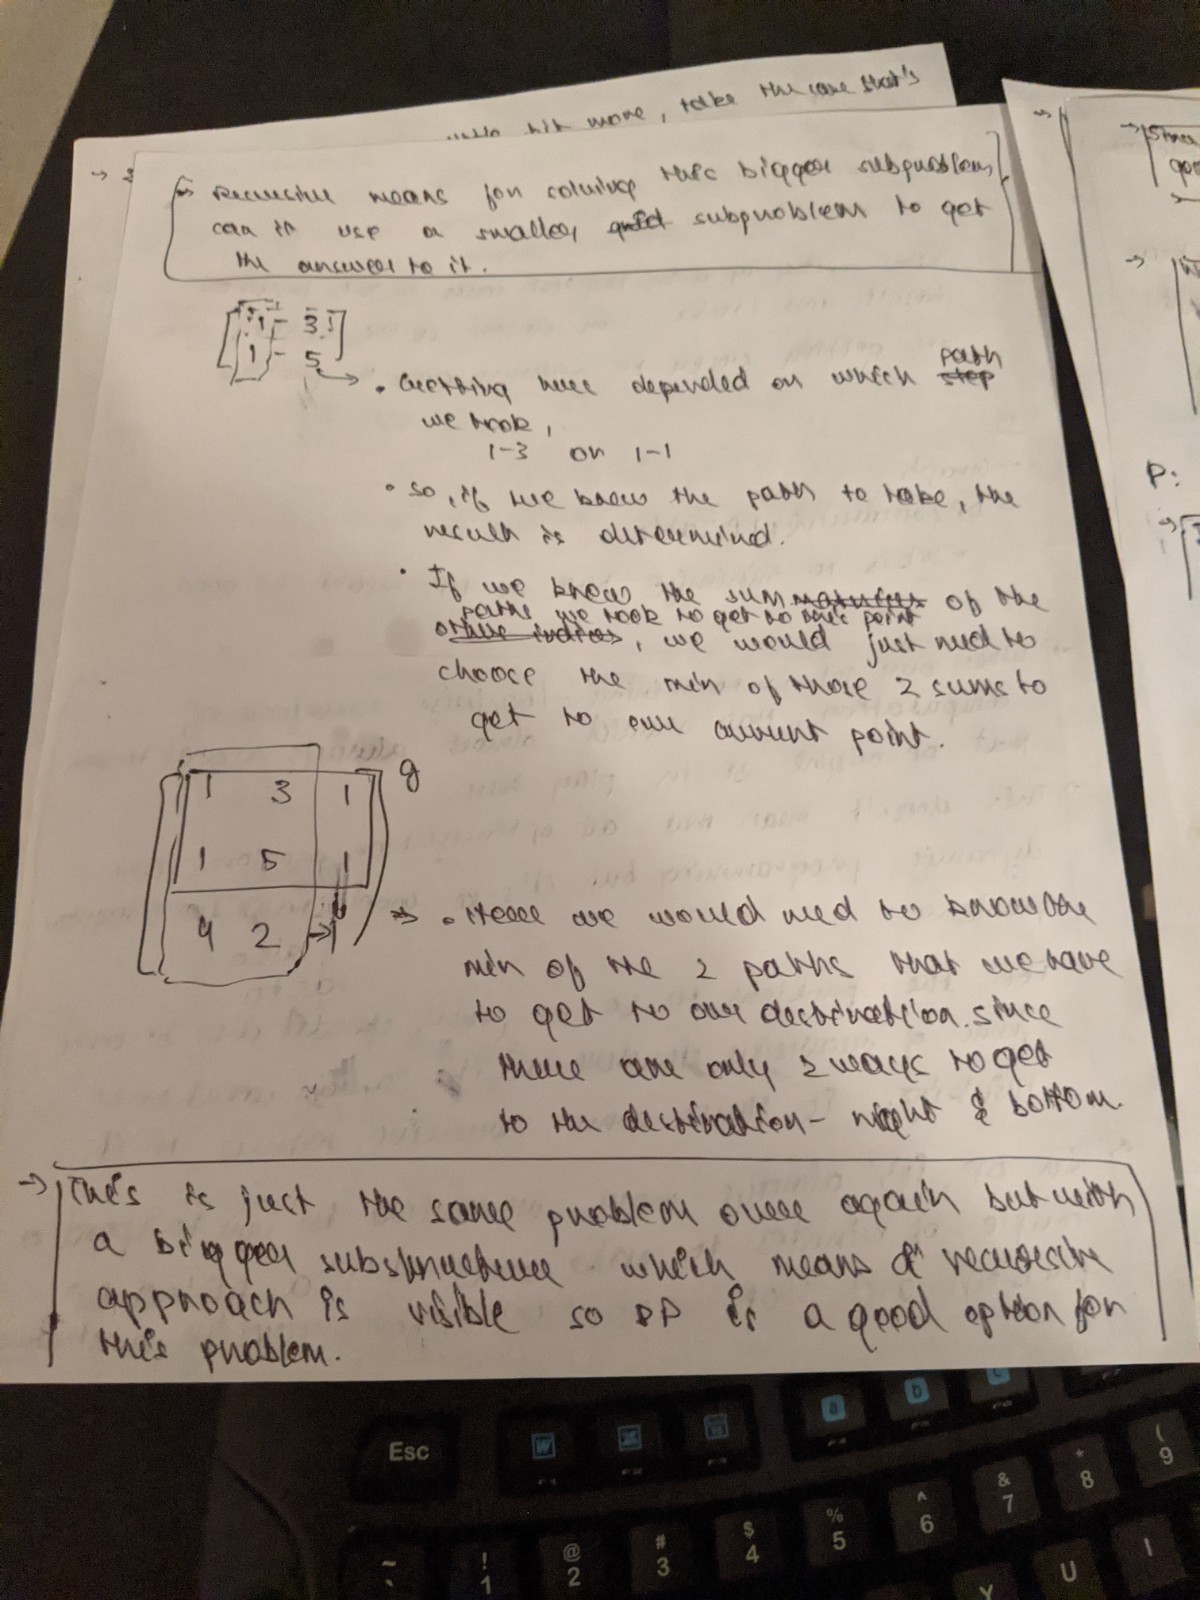 little bit more, take the case that's
→ Recursive means for solving this bigger subproblem,
can it use a smaller, grid subproblem to get
the answer to it.
1 - 3
1 - 5
path
• Getting here depended on which step
we took,
1-3 or 1-1
• So, if we knew the path to take, the
result is determined.
• If we knew the sum of the
paths we took to get to this point
other indices, we would just need to
choose the min of those 2 sums to
get to our current point.
1 3 1
1 5 1
4 2 → 1
→ • Here we would need to know the
min of the 2 paths that we have
to get to our destination. since
there are only 2 ways to get
to the destination - right & bottom.
→ This is just the same problem over again but with
a bigger substructure which means a recursive
approach is visible so DP is a good option for
this problem.
P:
Esc
F1 F2 F3 F4 F5 F6
~ ! @ # $ % ^ & * (
` 1 2 3 4 5 6 7 8 9
Y U I